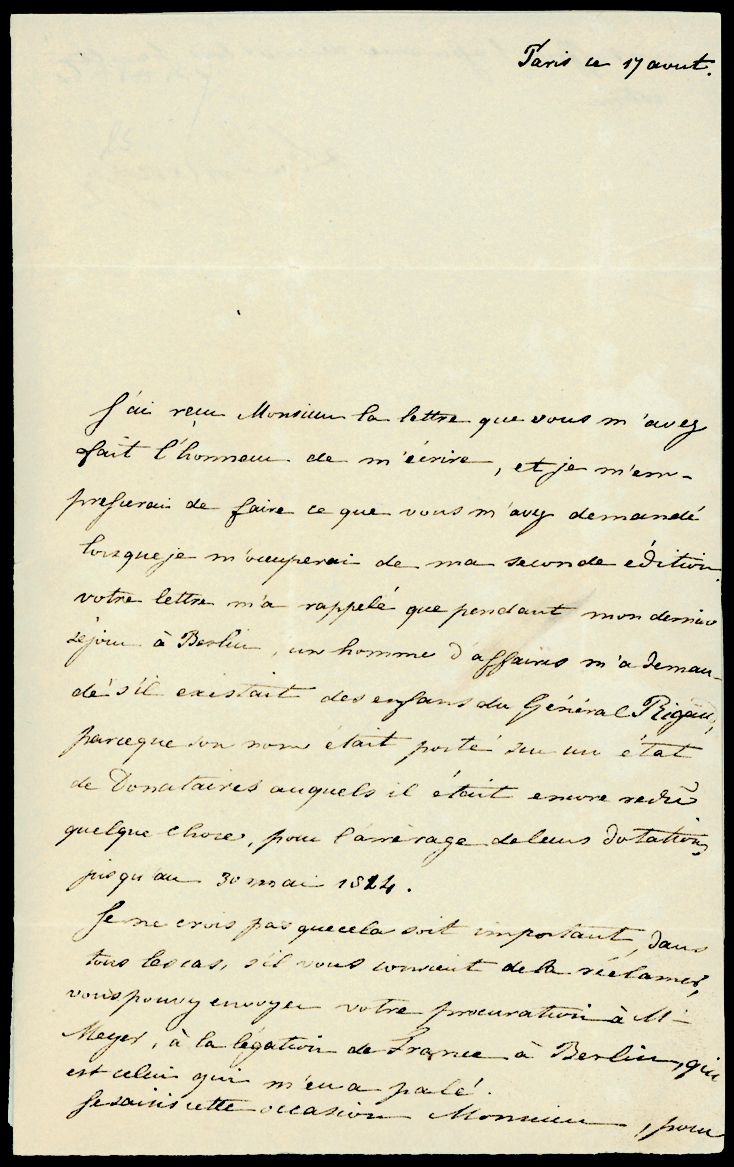 Paris ce 17 aout.
J'ai reçu Monsieur la lettre que vous m'avez
fait l'honneur de m'écrire, et je m'em-
presserai de faire ce que vous m'avez demandé
lorsque je m'occuperai de ma seconde édition.
votre lettre m'a rappelé que pendant mon dernier
séjour à Berlin, un homme d'affaires m'a deman-
dé s'il existait des enfans du Général Rigau,
parceque son nom était porté sur un état
de Donataires auquels il était encore redû
quelque chose, pour l'arrérage de leurs dotations
jusqu'au 30 mai 1814.
Je ne crois pas que cela soit important, dans
tous les cas, s'il vous convient de la réclamer,
vous pouvez envoyer votre procuration à Mr
Meyer, à la légation de France à Berlin, qui
est celui qui m'en a palé.
Je saisis cette occasion Monsieur, pour